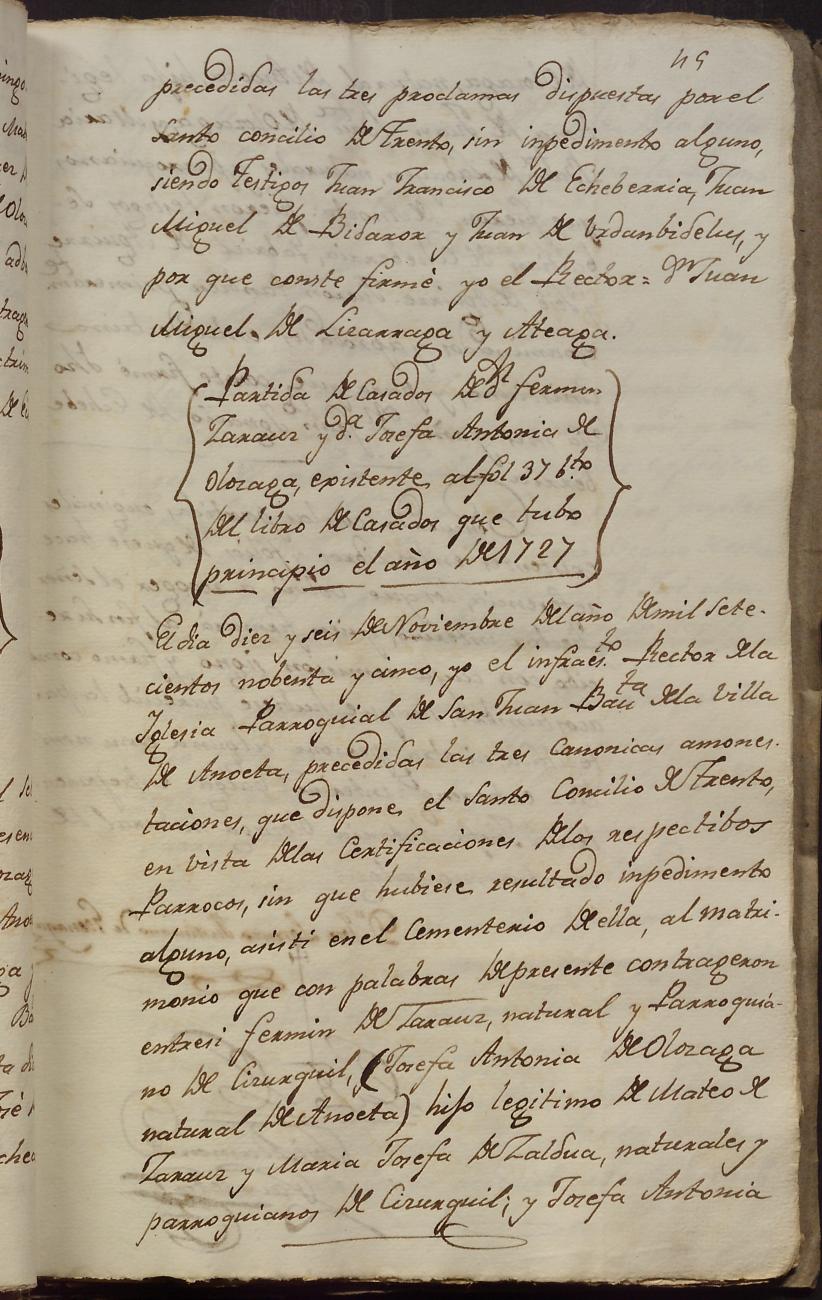 45
precedidas las tres proclamas dispuestas por el
Santo concilio de Trento, sin inpedimento alguno,
siendo Testigos Juan Francisco de Echeberria, Juan
Miguel de Bidaror y Juan de Urdanbidelus, y
por que conste firmé yo el Rector = Dn Juan
Miguel de Lizarraga y Ateaga.
Partida de Casados de dn fermin
Zarauz y da Josefa Antonia de
Olozaga, existente al fol 37 bto
del libro de Casados que tubo
principio el año de 1727
El dia diez y seis de Noviembre del año de mil sete-
cientos nobenta y cinco, yo el infraesto Rector de la
Iglesia Parroquial de San Juan Bauta de la Villa
de Anoeta, precedidas las tres Canonicas amones-
taciones, que dispone el Santo Concilio de Trento,
en vista de las Certificaciones de los respectibos
Parrocos, sin que hubiese resultado inpedimento
alguno, asisti en el Cementerio de ella, al matri-
monio que con palabras de presente contrageron
entresi fermin de Zarauz, natural y Parroquia-
no de Cizurquil, (Josefa Antonia de Olozaga
natural de Anoeta) hijo legitimo de Mateo de
Zarauz y Maria Josefa de Zaldua, naturales y
parroquianos de Cizurquil; y Josefa Antonia